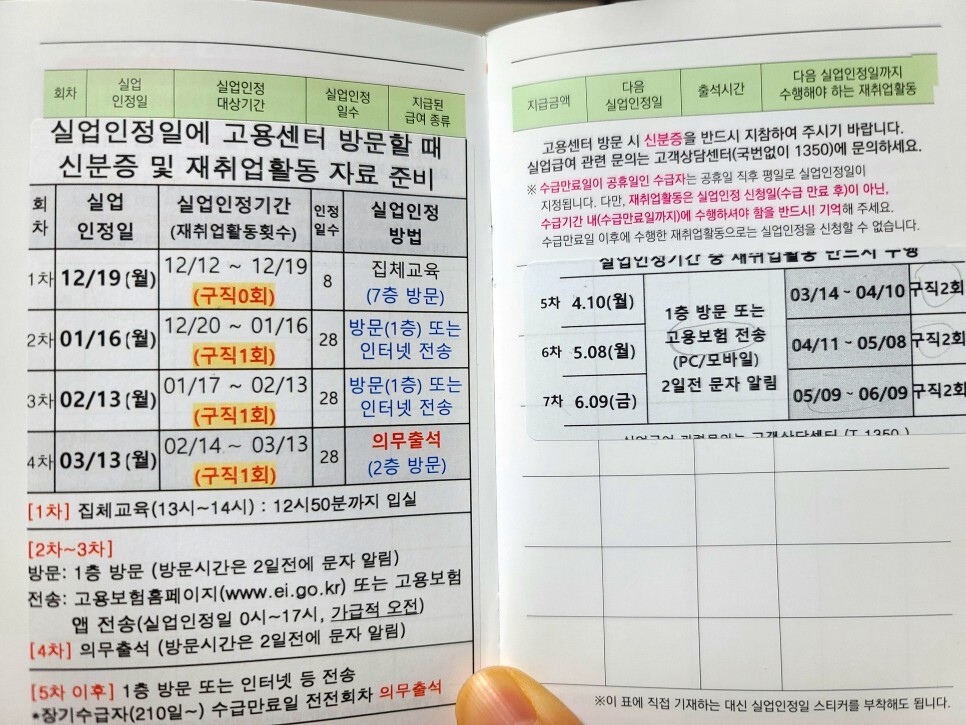 회차 실업인정일 실업인정 대상기간 실업인정 일수 지급된 급여 종류
실업인정일에 고용센터 방문할 때
신분증 및 재취업활동 자료 준비
회차 실업인정일 실업인정기간 (재취업활동횟수) 인정일수 실업인정 방법
1차 12/19 (월) 12/12 ~ 12/19 (구직0회) 8 집체교육 (7층 방문)
2차 01/16 (월) 12/20 ~ 01/16 (구직1회) 28 방문(1층) 또는 인터넷 전송
3차 02/13 (월) 01/17 ~ 02/13 (구직1회) 28 방문(1층) 또는 인터넷 전송
4차 03/13 (월) 02/14 ~ 03/13 (구직1회) 28 의무출석 (2층 방문)
[1차] 집체교육(13시~14시) : 12시50분까지 입실
[2차~3차]
방문: 1층 방문 (방문시간은 2일전에 문자 알림)
전송: 고용보험홈페이지(www.ei.go.kr) 또는 고용보험
앱 전송(실업인정일 0시~17시, 가급적 오전)
[4차] 의무출석 (방문시간은 2일전에 문자 알림)
[5차 이후] 1층 방문 또는 인터넷 등 전송
*장기수급자(210일~) 수급만료일 전전회차 의무출석
지급금액 다음 실업인정일 출석시간 다음 실업인정일까지 수행해야 하는 재취업활동
고용센터 방문 시 신분증을 반드시 지참하여 주시기 바랍니다.
실업급여 관련 문의는 고객상담센터(국번없이 1350)에 문의하세요.
※ 수급만료일이 공휴일인 수급자는 공휴일 직후 평일로 실업인정일이
지정됩니다. 다만, 재취업활동은 실업인정 신청일(수급 만료 후)이 아닌,
수급기간 내(수급만료일까지)에 수행하셔야 함을 반드시! 기억해 주세요.
수급만료일 이후에 수행한 재취업활동으로는 실업인정을 신청할 수 없습니다.
실업인정기간 중 재취업활동 반드시 수행
5차 4.10(월) 03/14 ~ 04/10 구직2회
6차 5.08(월) 04/11 ~ 05/08 구직2회
7차 6.09(금) 05/09 ~ 06/09 구직2회
1층 방문 또는
고용보험 전송
(PC/모바일)
2일전 문자 알림
실업급여 관련문의는 고객상담센터 (T.1350 )
※이 표에 직접 기재하는 대신 실업인정일 스티커를 부착해도 됩니다.